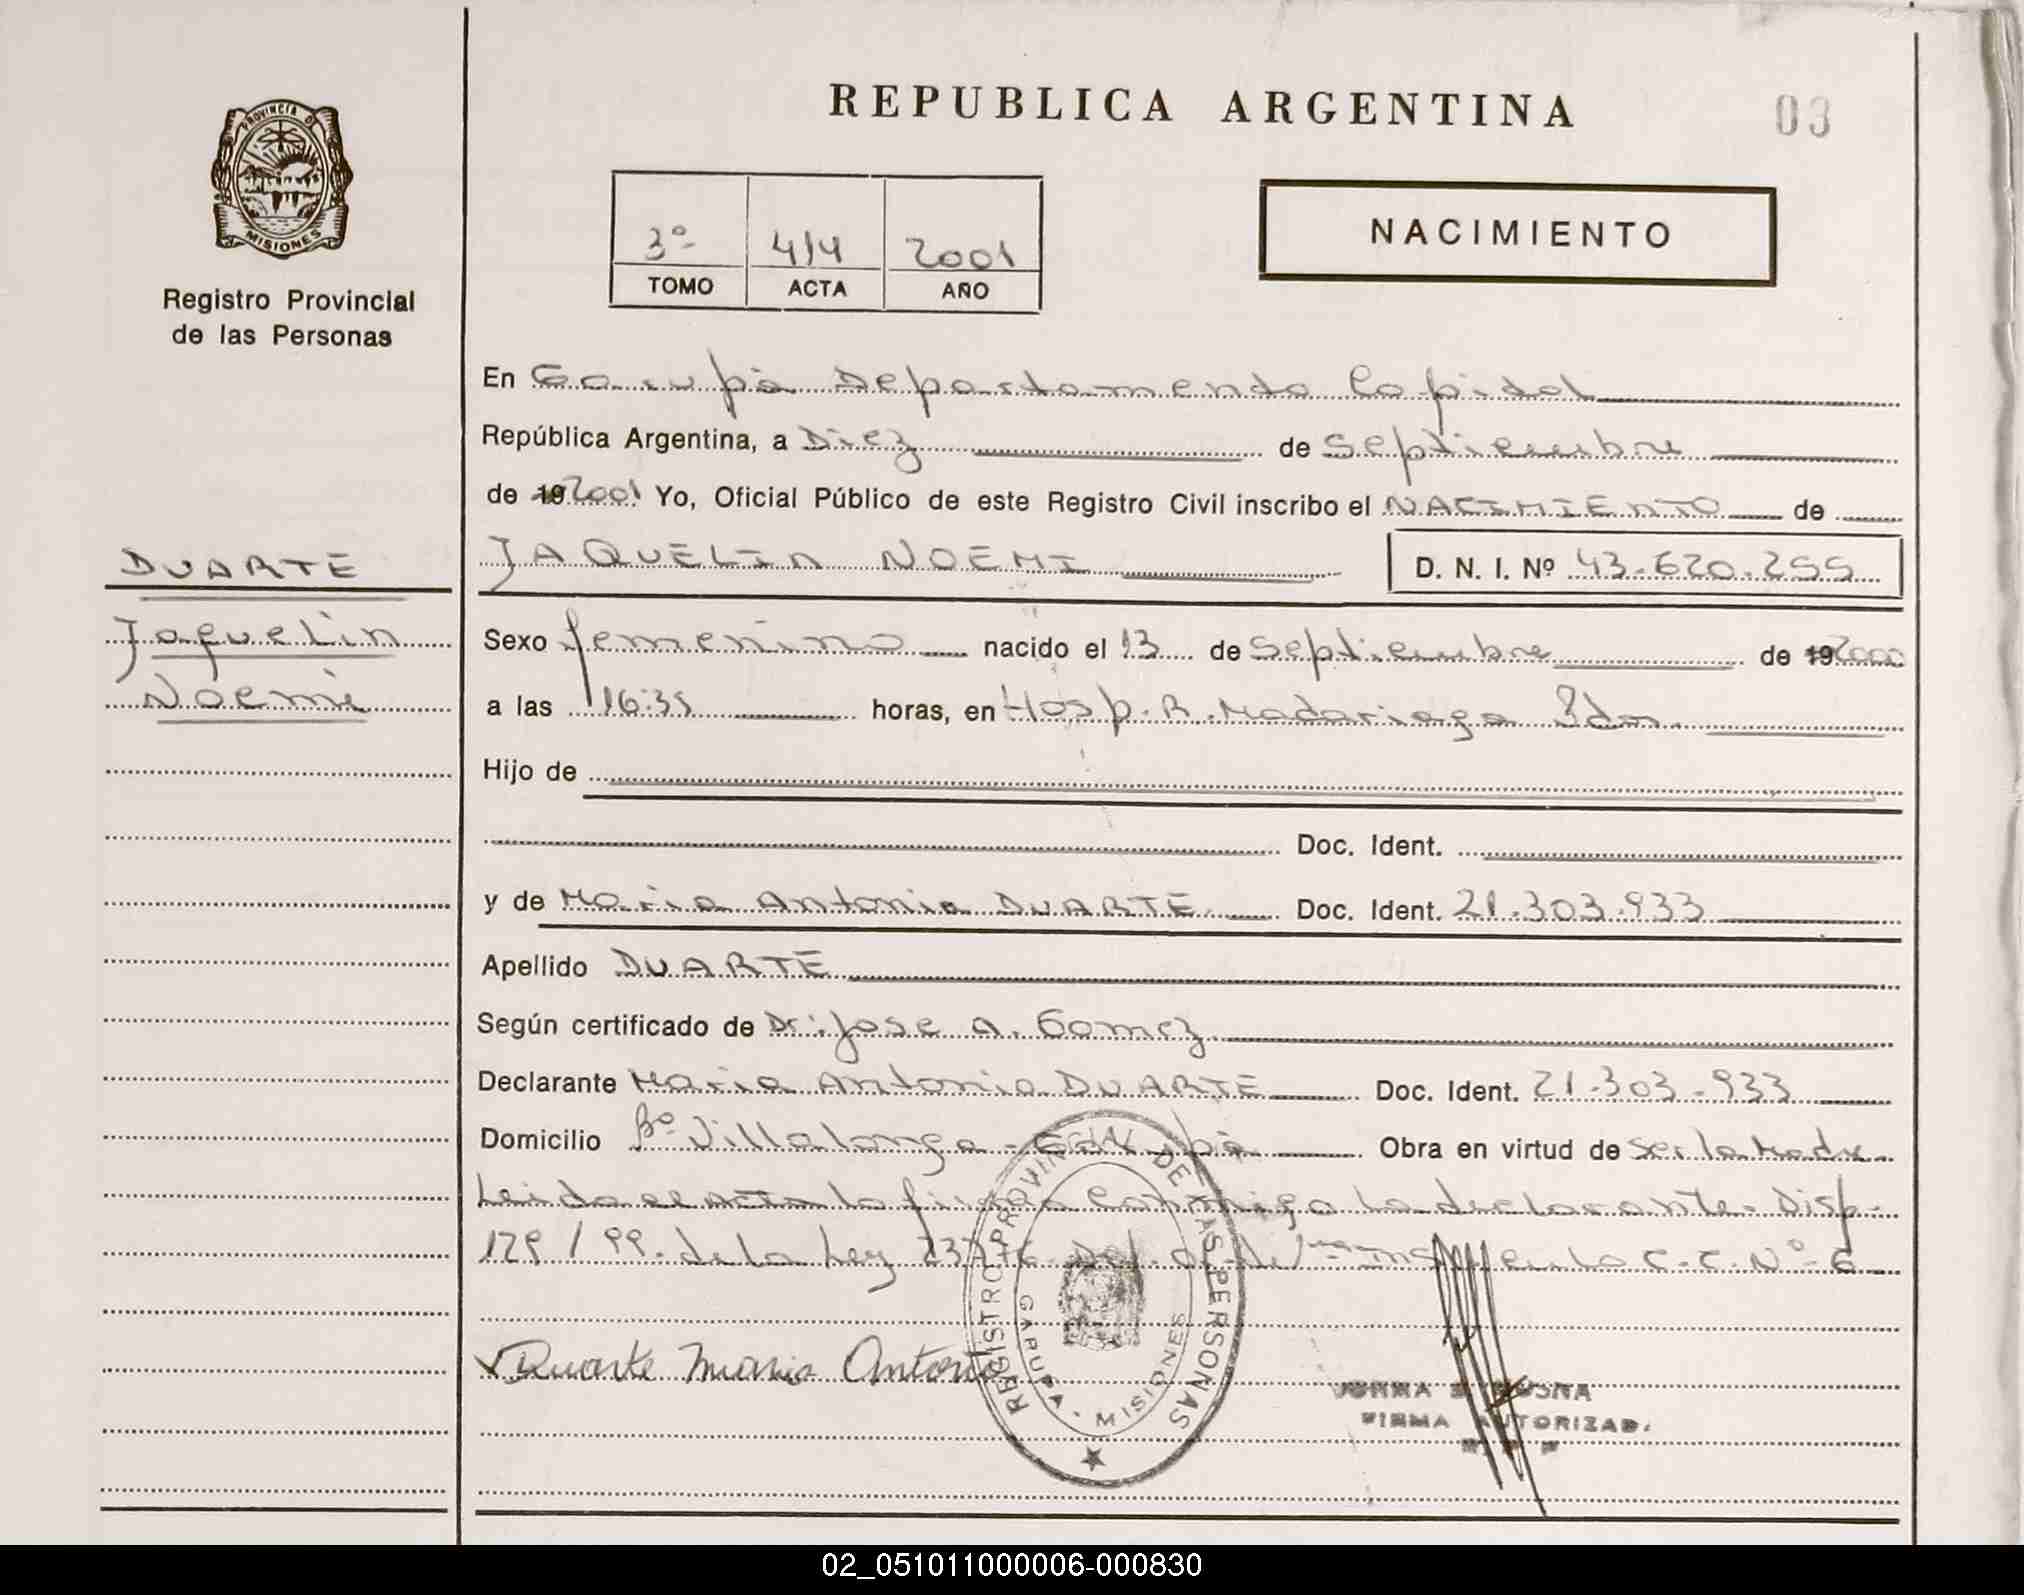 REPUBLICA ARGENTINA
03
PROVINCIA DE
MISIONES
Registro Provincial
de las Personas
3º 414 2001
TOMO ACTA AÑO
NACIMIENTO
En Garupá Departamento Capital
República Argentina, a Diez de Septiembre
de 19 2001 Yo, Oficial Público de este Registro Civil inscribo el NACIMIENTO de
DUARTE
JAQUELIN NOEMI D. N. I. Nº 43.620.255
Jaquelin
Noemi
Sexo femenino nacido el 13 de Septiembre de 19 2000
a las 16:35 horas, en Hosp. R. Madariaga Pdas.
Hijo de
Doc. Ident.
y de Maria Antonia DUARTE Doc. Ident. 21.303.933
Apellido DUARTE
Según certificado de Dr: Jose A. Gomez
Declarante Maria Antonia DUARTE Doc. Ident. 21.303.933
Domicilio Bº Villalonga - Garupá Obra en virtud de ser la Madre
Leida el Acta la firma conmigo la declarante. Disp.
129/99. de la Ley C.C. Nº 6
Duarte Maria Antonia
REGISTRO PROVINCIAL DE LAS PERSONAS
GARUPA - MISIONES
FIRMA AUTORIZAD.
02_051011000006-000830